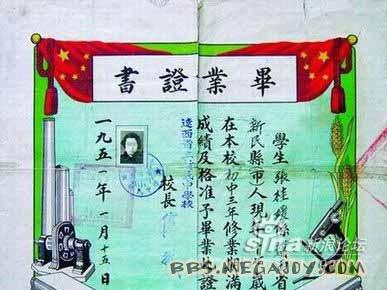 畢業證書
學生張桂係省
新民縣市人現歲
在本校初中三年修業滿
成績及格准予畢業證
遼西省中學校
校長
一九五一年一月十五日
sina 新浪论坛
BBS.MEGAJOY.COM